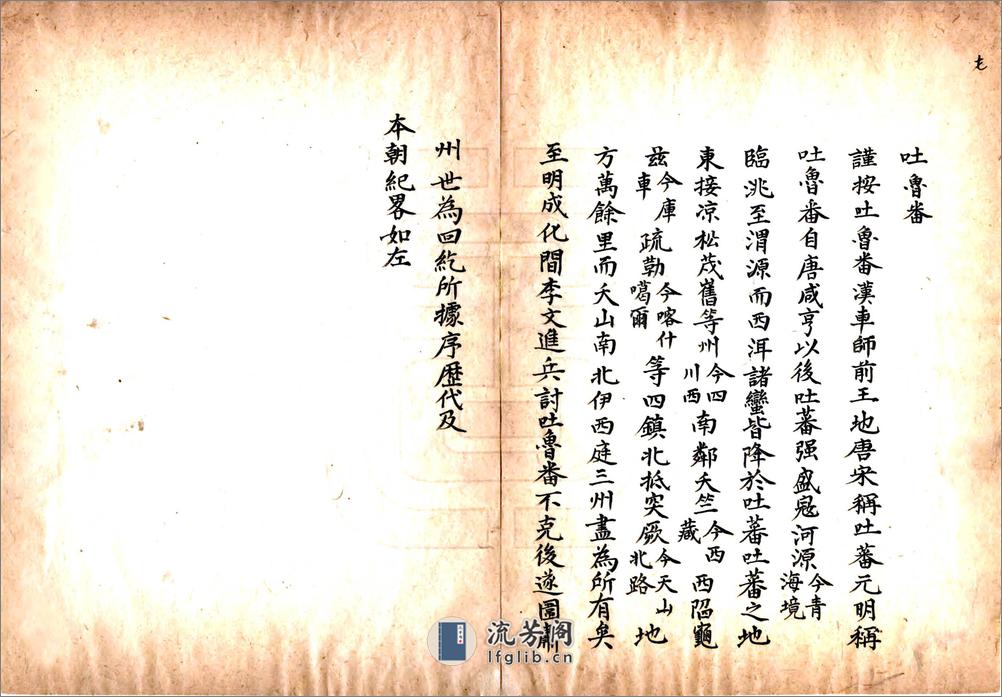 七
吐魯番
謹按吐魯番漢車師前王地唐宋稱吐蕃元明稱
吐魯番自唐咸亨以後吐蕃强盛寇河源今青海境
臨洮至渭源而西洱諸蠻皆降於吐蕃吐蕃之地
東接凉松茂舊等州今四川西南鄰天竺今西藏西陷龜
兹今庫車疏勒今喀什噶爾等四鎮北抵突厥今天山北路地
方萬餘里而天山南北伊西庭三州盡為所有矣
至明成化間李文進兵討吐魯番不克後遂圖肅
州世為回紇所據序歷代及
本朝紀畧如左
流芳閣
lfglib.cn